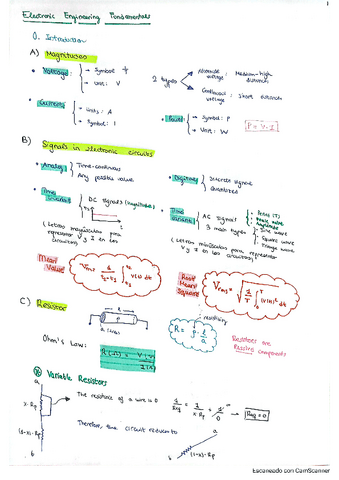 1
Electronic Engineering Fundamentals
0. Introduction
A) Magnitudes
• Voltage
→ Symbol:
→ Unit: V
2 types
Alternate voltage: Medium-high distance
Continuous voltage: short distance
• Current
→ Units: A
→ Symbol: I
• Power
→ Symbol: P
→ Unit: W
P = V · I
B) Signals in electronic circuits
• Analog
→ Time-continuous
Any possible value
• Digital
→ Discrete signal
→ Quantized
• Time Invariant
DC signals
(Letras mayúsculas para representar V y I en los circuitos)
• Time Variant
AC signals
3 main types
Sine wave
Square wave
Triangle wave
(Letras minúsculas para representar V y I en los circuitos)
Mean Value
Root Mean Square
C) Resistor
a (area)
resistivity
Resistors are Passive components
Ohm's Law:
Variable Resistors
a
x·Rp
(1-x)·Rp
b
The resistance of a wire is 0
Req = 0
Therefore, this circuit reduces to
(1-x)·Rp
Escaneado con CamScanner